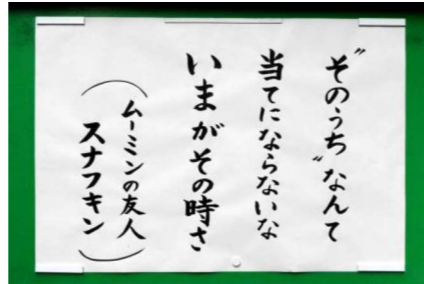 〝そのうち〟なんて
当てにならないな
いまがその時さ
(ムーミンの友人
スナフキン)